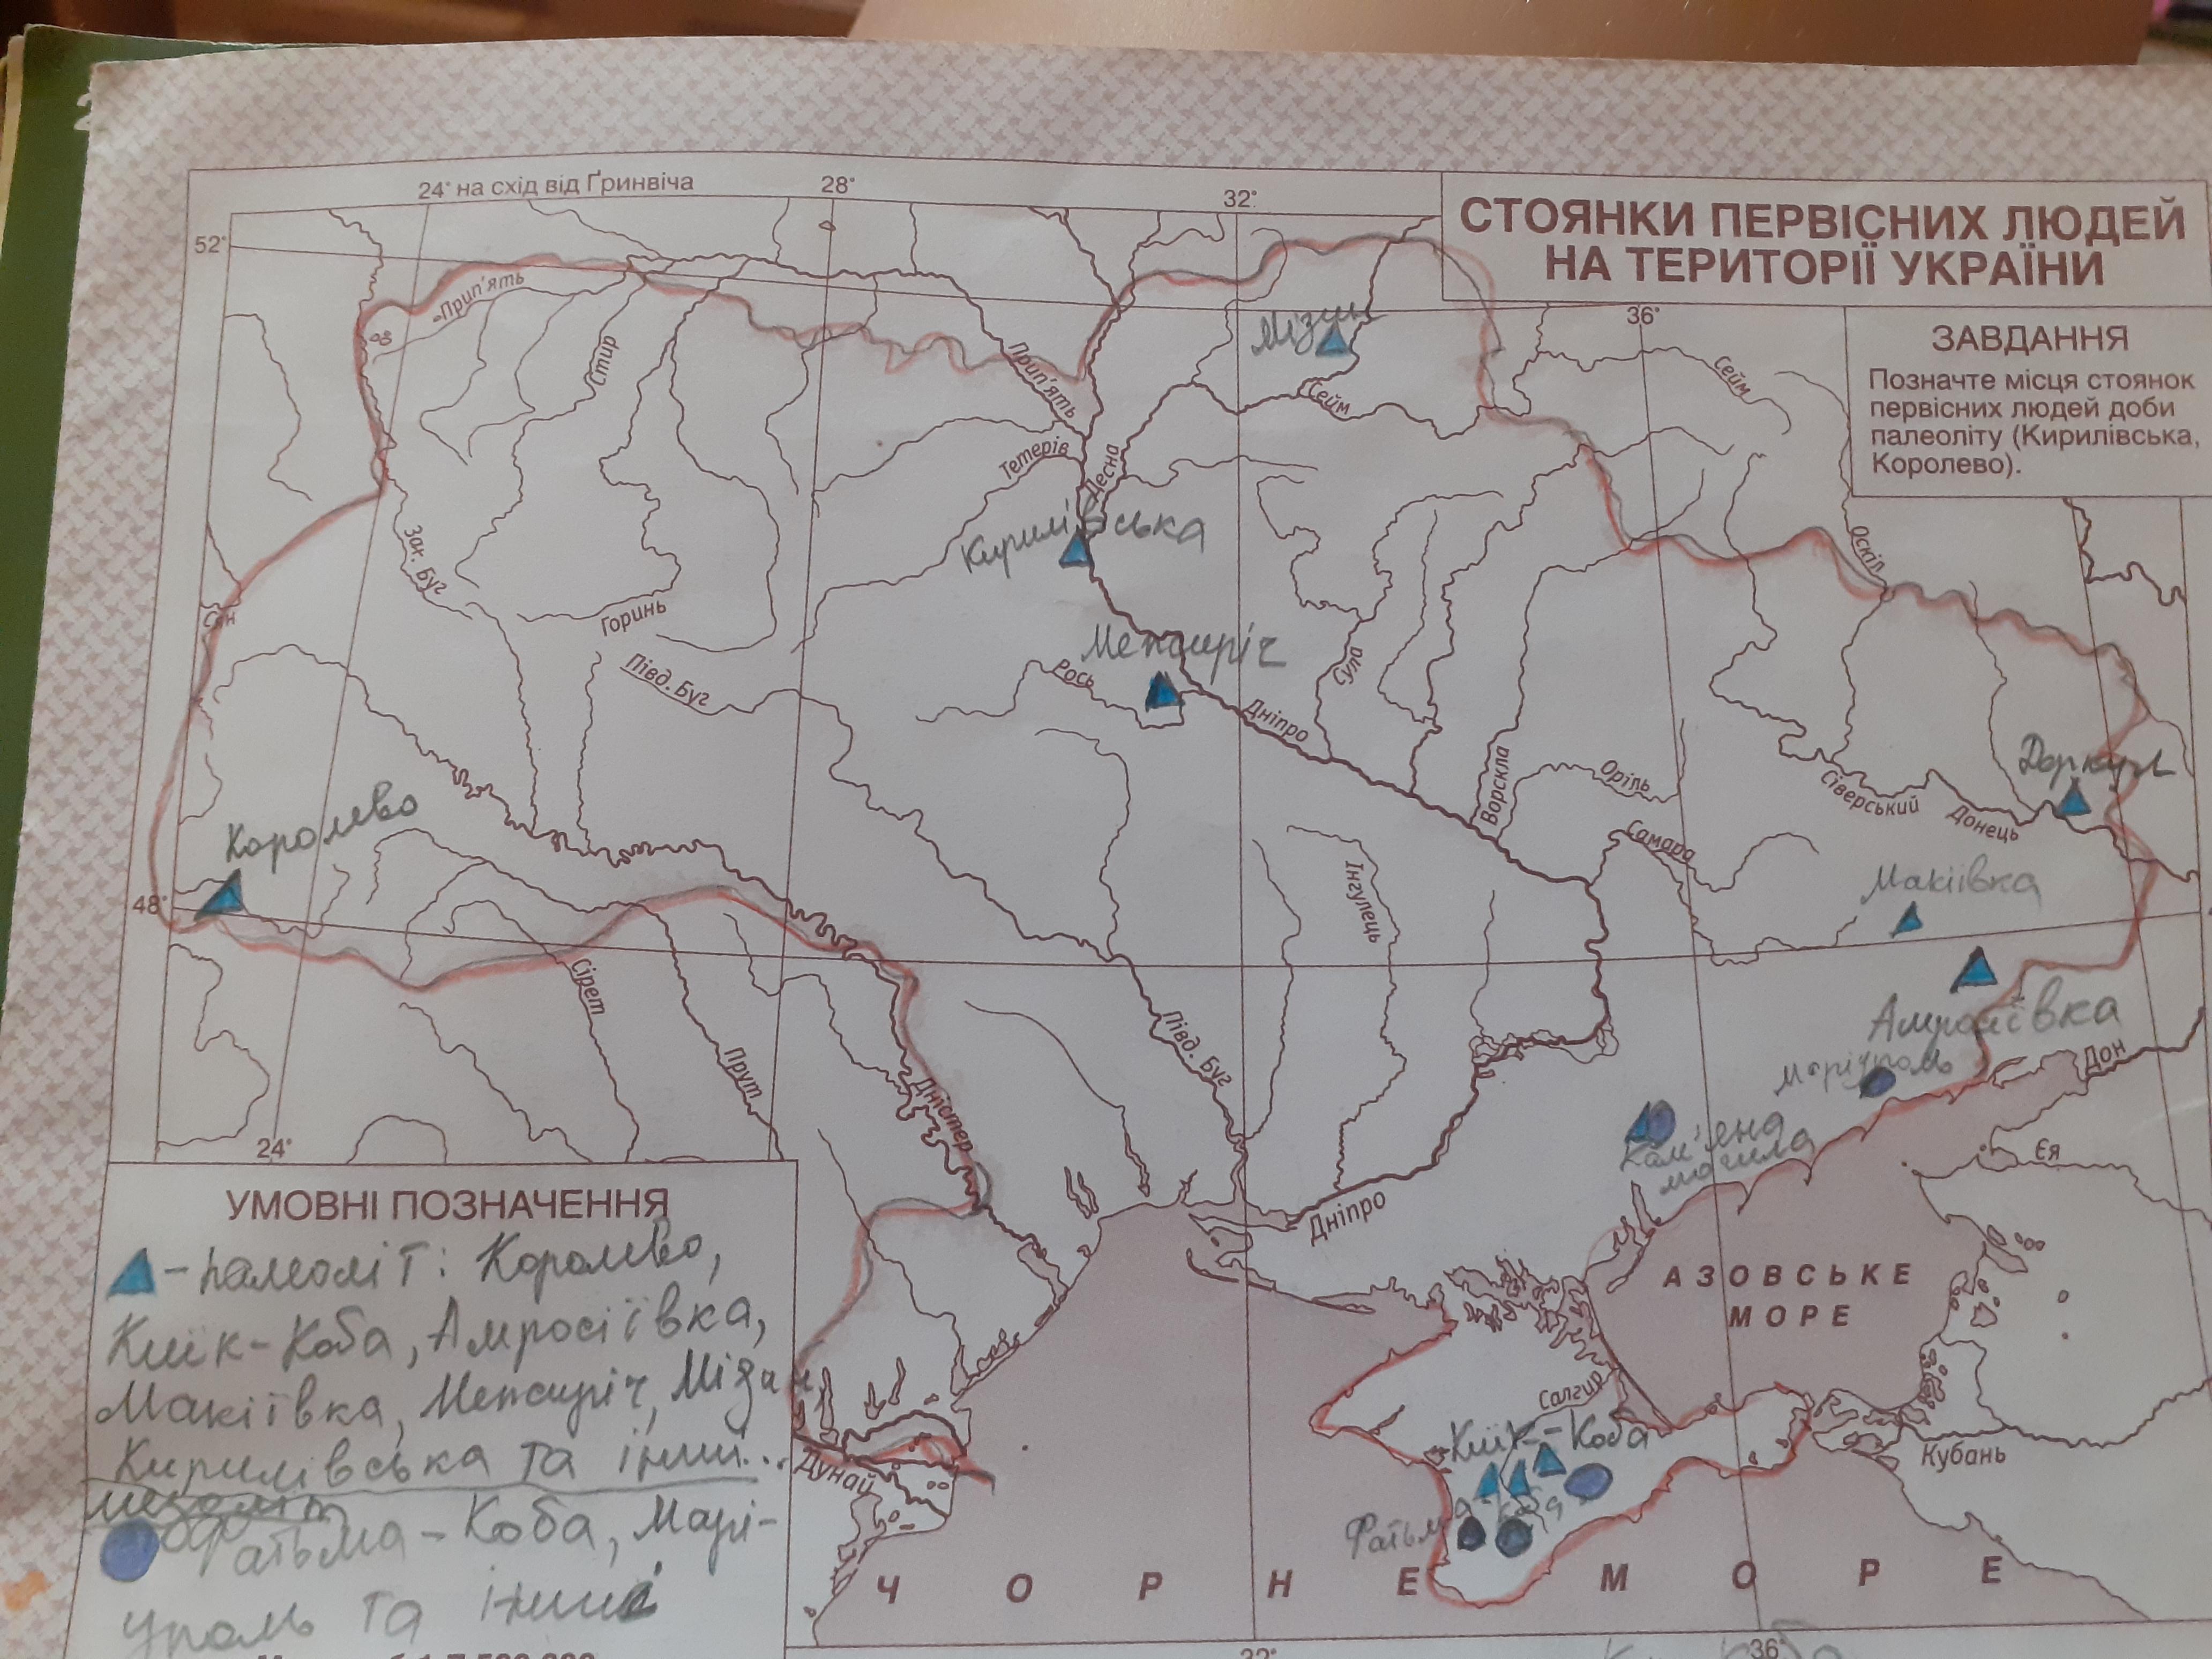 24° на схід від Ґринвіча
28°
32°
СТОЯНКИ ПЕРВІСНИХ ЛЮДЕЙ
НА ТЕРИТОРІЇ УКРАЇНИ
52°
36°
ЗАВДАННЯ
Позначте місця стоянок
первісних людей доби
палеоліту (Кирилівська,
Королево).
Прип'ять
Стир
Прип'ять
Мізин
Сейм
Сейм
Тетерів
Десна
Кирилівська
Зах. Буг
Оскіл
Сян
Горинь
Півд. Буг
Межиріч
Рось
Сула
Дніпро
Ворскла
Оріль
Деркул
Сіверський Донець
Самара
Королево
Інгулець
Макіївка
48°
Сірет
Прут
Дністер
Півд. Буг
Амросіївка
Маріуполь
Дон
Кам'яна
могила
Єя
24°
Дніпро
АЗОВСЬКЕ
МОРЕ
Салгир
Киїк-Коба
Кубань
Фатьма-Коба
Дунай
ЧОРНЕ МОРЕ
32°
36°
УМОВНІ ПОЗНАЧЕННЯ
- палеоліт: Королево,
Киїк-Коба, Амросіївка,
Макіївка, Межиріч, Мізин,
Кирилівська та інші...
мезоліт
Фатьма-Коба, Марі-
уполь та інші